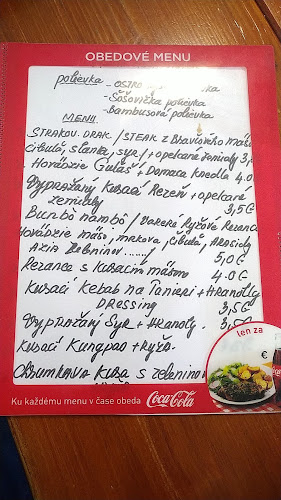 OBEDOVÉ MENU
polievka - OSTRO
- Šošovička polievka
MENU - Bambusová polievka
STRAKOV. DRAK / STEAK z Bravčového mäsa
cibuľa, slanka, syr / + opekané zemiaky 3,
Hovädzie Guláš + Domaca Knedla 4.0
Vyprážaný Kuraci Rezeň + opekané
zemiaky 3,5€
Bun bó nam bó / Varené Ryžové Rezance
Hovädzie mäso, mrkova, cibuľa, Arašidy
Azia Zeleninov 5,0€
Rezance s Kuracím mäsom 4.0€
Kuraci Kebab na Tanieri + Hranolky
Dressing 3,5€
Vyprážaný Syr + Hranolky. 3,5€
Kuraci Kungpao + Ryža.
Chrumkava Kura s zeleninov
len za
€
Ku každému menu v čase obeda Coca-Cola